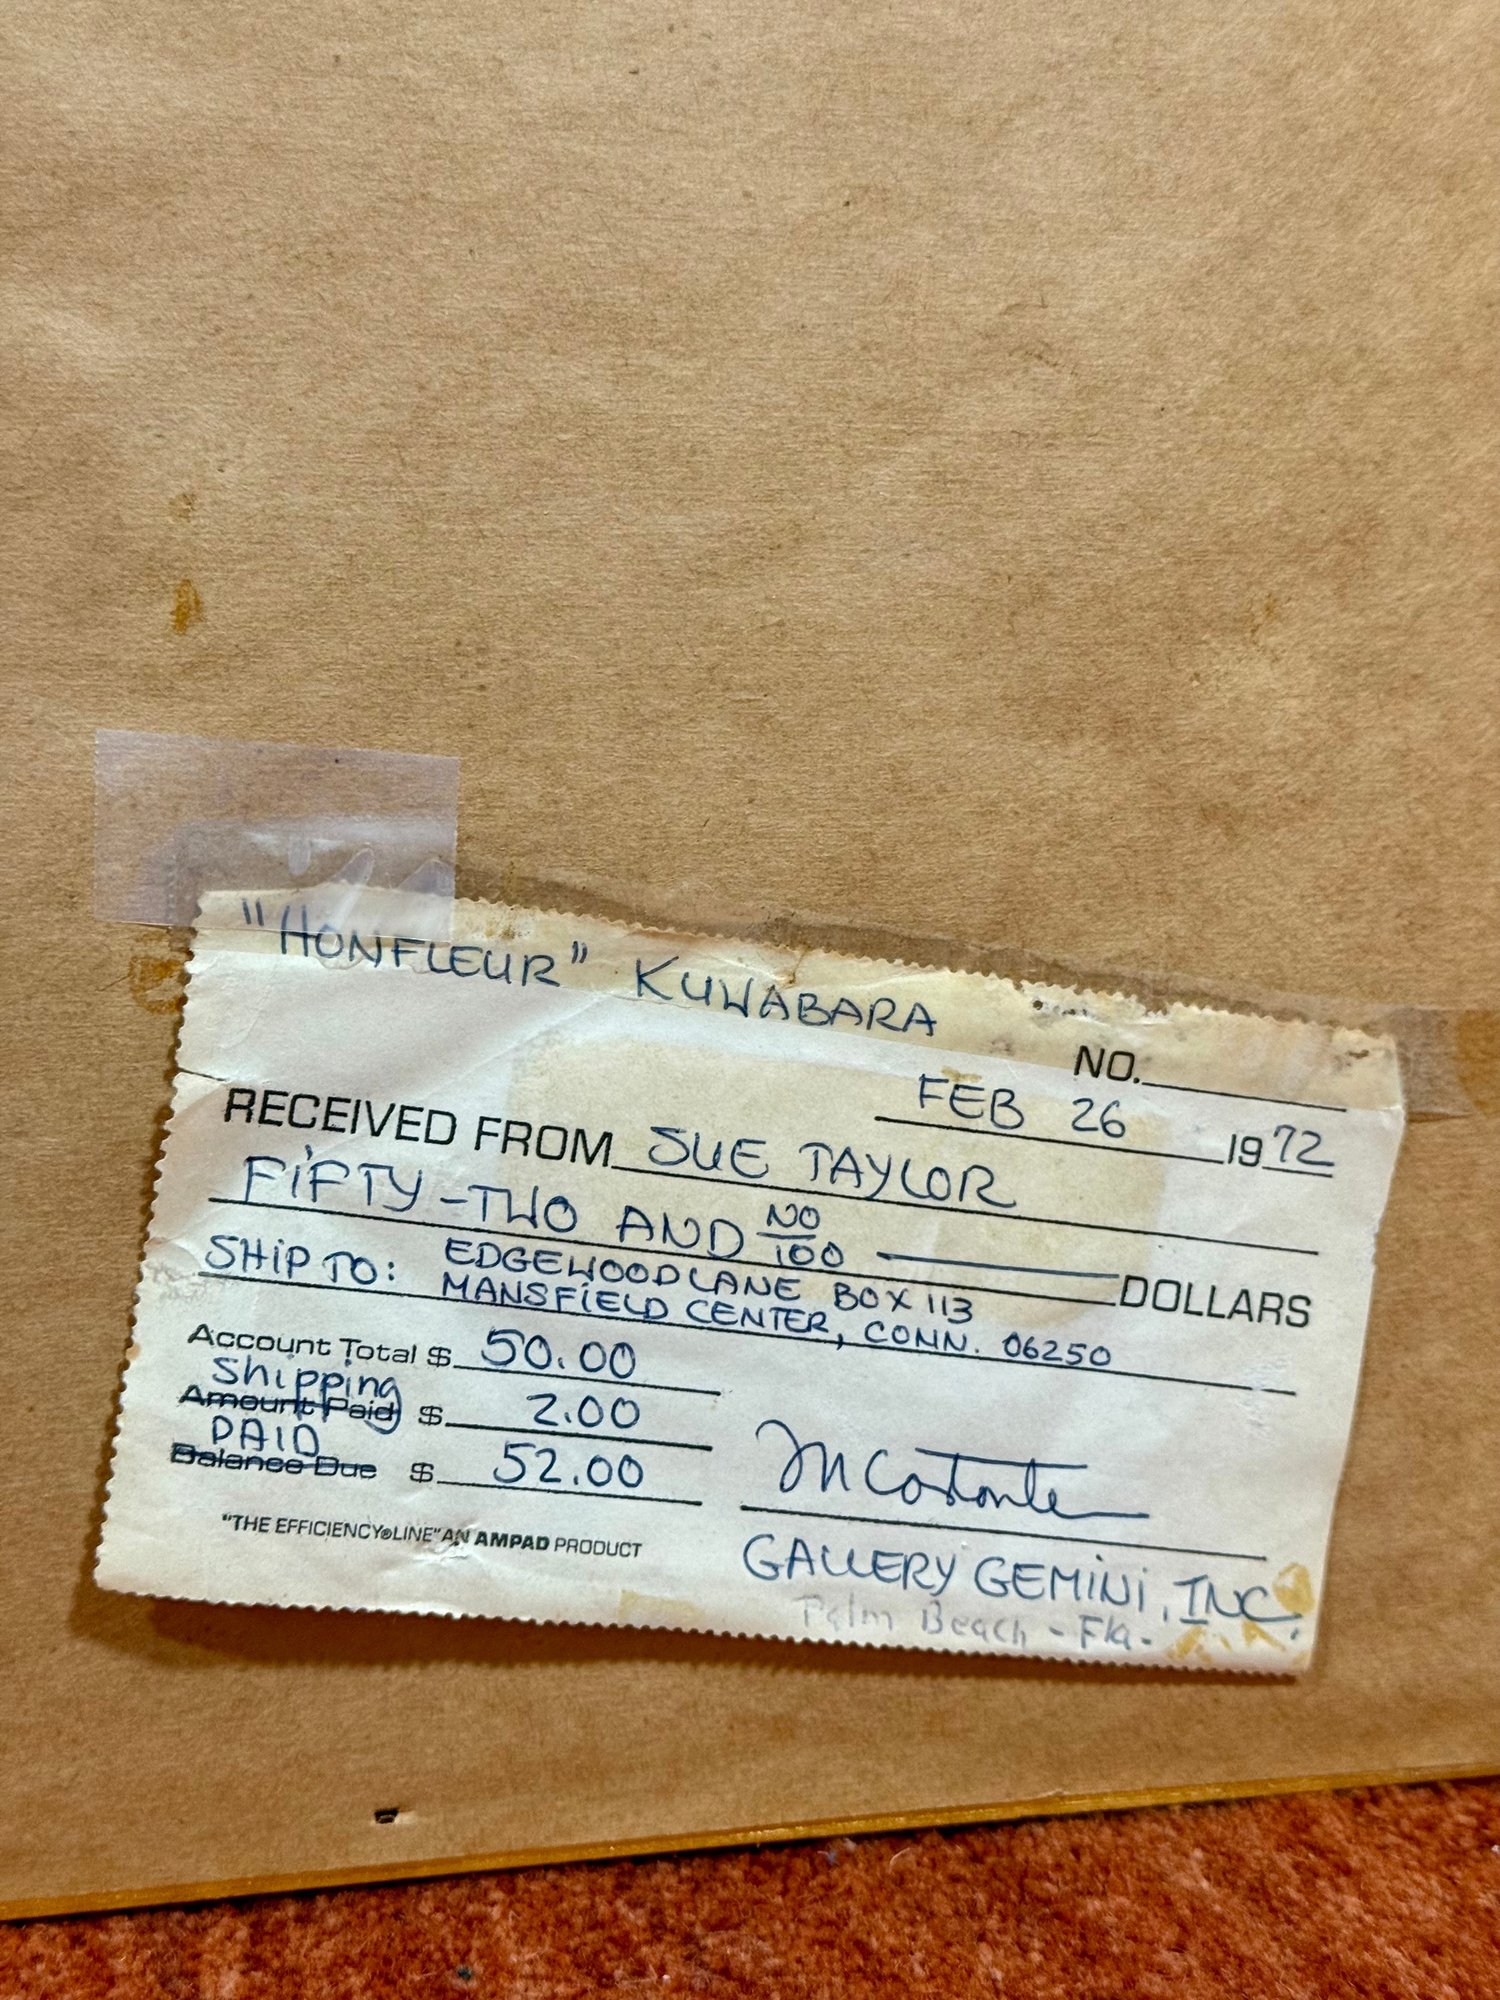 "HONFLEUR" KUWABARA
NO.
FEB 26 1972
RECEIVED FROM SUE TAYLOR
FIFTY-TWO AND NO/100 DOLLARS
SHIP TO: EDGEWOOD LANE BOX 113
MANSFIELD CENTER, CONN. 06250
Account Total $ 50.00
Shipping
Amount Paid $ 2.00
PAID
Balance Due $ 52.00
"THE EFFICIENCY®LINE" AN AMPAD PRODUCT
GALLERY GEMINI, INC.
Palm Beach - Fla-